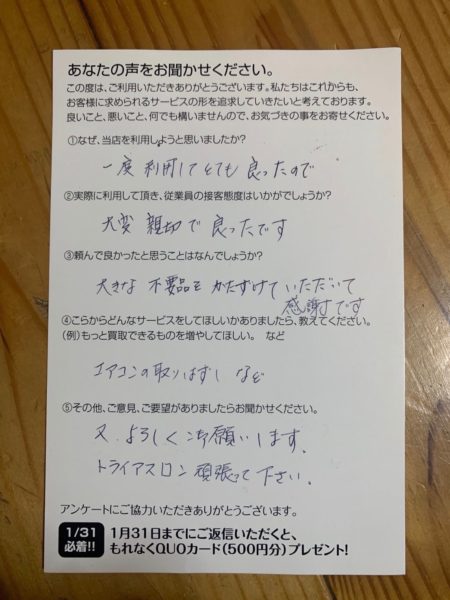 あなたの声をお聞かせください。
この度は、ご利用いただきありがとうございます。私たちはこれからも、
お客様に求められるサービスの形を追求していきたいと考えております。
良いこと、悪いこと、何でも構いませんので、お気づきの事をお寄せください。
①なぜ、当店を利用しようと思いましたか?
一度 利用してとても 良ったので
②実際に利用して頂き、従業員の接客態度はいかがでしょうか?
大変 親切で 良ったです
③頼んで良かったと思うことはなんでしょうか?
大きな 不要品を かたずけて いただいて
感謝すです
④こらからどんなサービスをしてほしいかありましたら、教えてください。
(例)もっと買取できるものを増やしてほしい。 など
エアコンの取りはずし など
⑤その他、ご意見、ご要望がありましたらお聞かせください。
又、よろしくお願いします。
トライアスロン頑張って下さい。
アンケートにご協力いただきありがとうございます。
1/31
必着!!
1月31日までにご返信いただくと、
もれなくQUOカード(500円分)プレゼント!